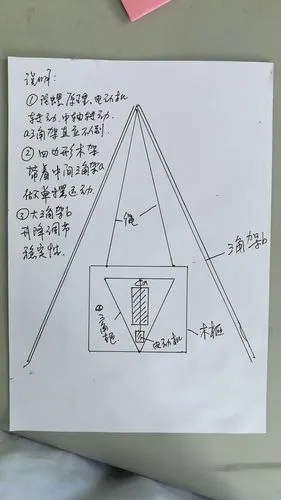 说明:
①陀螺原理,电动机
转动,中轴转动.
a三角架直立不倒.
②四边形木架
带着中间三角架a
做单摆运动.
③大三角架b
升降调节
稳定性.
绳
三角架b
木框
a
三角框
电动机